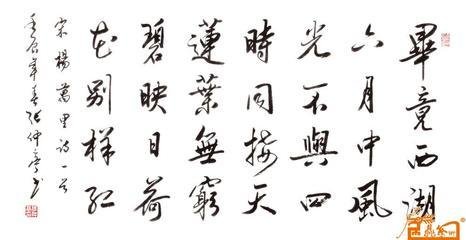 畢竟西湖
六月中風
光不與四
時同接天
蓮葉無窮
碧映日荷
花别樣红
宋楊萬里诗一首
壬辰年春张仲亭书